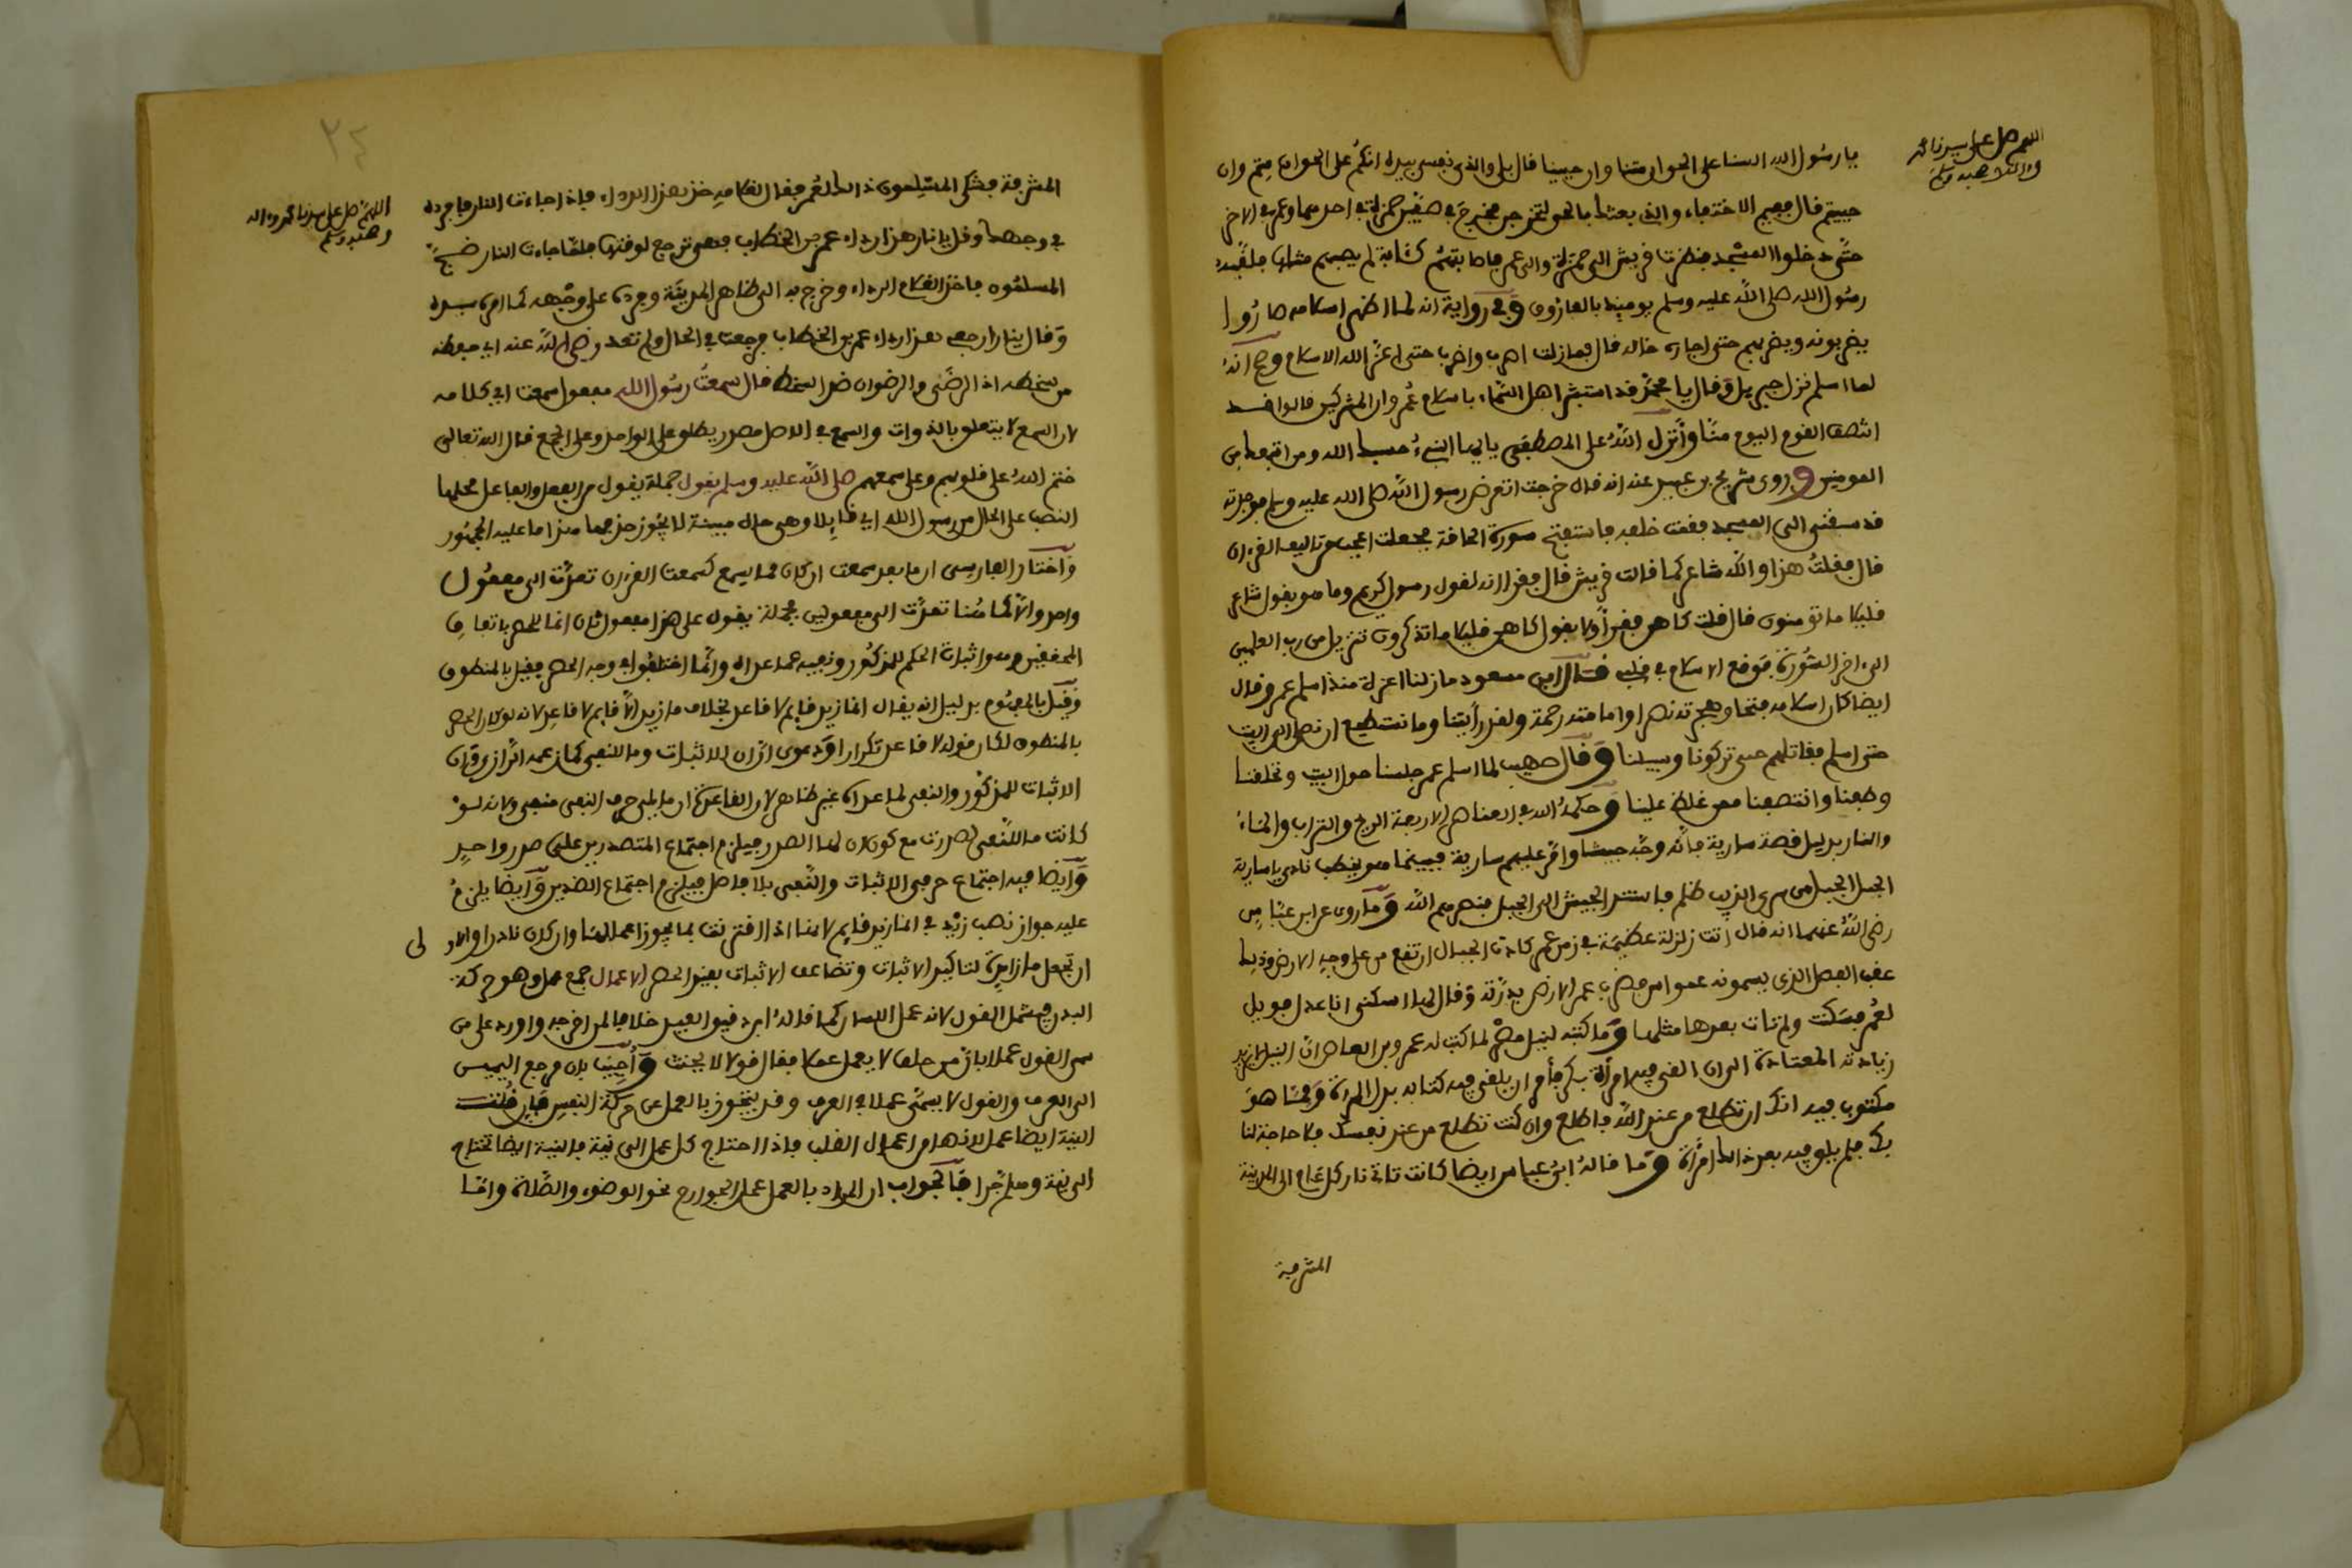 اللهم صل على سيدنا محمد
وءاله وصحبه وسلم
يا رسول الله السنا على الحق ان متنا وان حيينا قال بلى والذي نفسي بيده انكم على الحق ان متم وان
حييتم قال ففيم الاختفاء والذي بعثك بالحق لتخرجن فخرج في صفين حمزة في احدهما وعمر في الاخر
حتى دخلوا المسجد فنظرت قريش الى حمزة والى عمر فاصابتهم كئابة لم يصبهم مثلها فلقبه
رسول الله صلى الله عليه وسلم يومئذ بالفاروق وفي رواية انه لما اظهر اسلامه صاروا
يضربونه ويضربهم حتى اجاره خاله قال فما زلت اضرب واضرب حتى اعز الله الاسلام وصح انه
لما اسلم نزل جبريل وقال يا محمد قد استبشر اهل السماء باسلام عمر وان المشركين قالوا قد
انتصف القوم اليوم منا وانزل الله على المصطفى يايها النبيء حسبك الله ومن اتبعك من
المومنين وروى شريح بن عبيد عنه انه قال خرجت اتعرض رسول الله صلى الله عليه وسلم فوجدته
قد سبقني الى المسجد فقمت خلفه فاستفتح سورة الحاقة فجعلت اعجب من تاليف القرءان
قال فقلت هذا والله شاعر كما قالت قريش قال فقرا انه لقول رسول كريم وما هو بقول شاعر
قليلا ما تومنون قال قلت كاهن فقرأ ولا بقول كاهن قليلا ما تذكرون تنزيل من رب العلمين
الى ءاخر السورة فوقع الاسلام في قلبي قال ابن مسعود ما زلنا اعزة منذ اسلم عمر وقال
ايضا كان اسلامه فتحا وهجرته نصرا وامامته رحمة ولقد رأيتنا وما نستطيع ان نصلي الى البيت
حتى اسلم فقاتلهم حتى تركونا وسبيلنا وقال صهيب لما اسلم عمر جلسنا حول البيت وتحلقنا
وطفنا وانتصفنا ممن غلظ علينا وحكمه الله في العناصر الاربعة الريح والتراب والماء
والنار بدليل قصة سارية فانه وجه جيشا وامر عليهم سارية فبينما هو يخطب نادى يا سارية
الجبل الجبل من استرعى الذيب ظلم فاستند الجيش الى الجبل فنصرهم الله وما روى عن ابن عباس
رضي الله عنهما انه قال اتت زلزلة عظيمة في زمن عمر كادت الجبال ارتفع من على وجه الارض وذلك
عقب الفصل الذي يسمونه عمواس فضرب عمر الارض بدرته وقال لها اسكني انا عدل فويل
لعمر فسكنت ولم تات بعدها مثلها وما كتبه لنيل مصر لما كتب له عمرو بن العاص ان النيل لا يزيد
زيادته المعتادة الى ان القي فيه امرأة بكر فأمر ان يلقى فيه كتابه بدل المرأة ومما هو
مكتوب فيه انك ان تطلع من عند الله فاطلع وان كنت تطلع من عند نفسك فلا حاجة لنا
بك فلم يلق فيه بعد ذلك امرأة وما قاله ابن عباس ايضا كانت تاتي نار كل عام الى المدينة
المشرفة
٢٤
اللهم صل على سيدنا محمد وءاله
وصحبه وسلم
المشرفة فشكى المسلمون ذلك لعمر فقال لغلامه خذ هذا الرداء فاذا جاءت النار فافرده
في وجهها وقل يا نار هذا رداء عمر بن الخطاب فهي ترجع لوقتها فلما جاءت النار ضج
المسلمون فاخذ الغلام الرداء وخرج به الى ظاهر المدينة وفرده على وجهه كما امره سيده
وقال يا نار ارجعي هذا رداء عمر بن الخطاب فرجعت في الحال ولم تعد رضي الله عنه اي حفظه
من سخطه اذ الرضى والرضوان ضد السخط قال سمعت رسول الله مفعول سمعت اي كلامه
لان السمع لا يتعلق بالذوات والسمع في الاصل مصدر يطلق على الواحد وعلى الجمع قال الله تعالى
ختم الله على قلوبهم وعلى سمعهم صلى الله عليه وسلم يقول جملة يقول من الفعل والفاعل محلها
النصب على الحال من رسول الله اي قايلا وهي حال مبينة لا يجوز حذفها هذا ما عليه الجمهور
واختار الفارسي ان ما بعد سمعت ان كان مما يسمع كسمعت القرءان تعدت الى مفعول
واحد والا كما هنا تعدت الى مفعولين فجملة يقول على هذا مفعول ثان انما للحصر باتفاق
المحققين وهو اثبات الحكم للمذكور ونفيه عما عداه وانما اختلفوا في وجه الحصر فقيل بالمنطوق
وقيل بالمفهوم بدليل انه يقال انما زيد قايم لا قاعد بخلاف ما زيد الا قايم لا قاعد لانه لو كان الحصر
بالمنطوق لكان قوله لا قاعد تكرارا ودعوى ان ان للاثبات وما للنفي كما زعمه الرازي وان
الاثبات للمذكور والنفي لما عداه غير ظاهر لان القاعدة ان ما يلي حرف النفي منفي ولانه لو
كانت ما للنفي لصدرت مع كون ان لها الصدر فيلزم اجتماع المتصدرين على صدر واحد
وايضا فيه اجتماع حرفي الاثبات والنفي بلا فاصل فيلزم اجتماع الضدين وايضا يلزم
عليه جواز نصب زيد في انما زيد قايم لا منا اذا اقترنت بما يجوز اعمالها وان كان نادرا والاو لى
ان تجعل ما زايدة لتاكيد الاثبات وتضاعف الاثبات يفيد الحصر الاعمال جمع عمل وهو حركة
البدن فيشمل القول لانه عمل اللسان كما قاله ابن دقيق العيد خلافا لمن اخرجه واورد على من
سمى القول عملا بان من حلف لا يعمل عملا فقال قولا لا يحنث واجيب بان مرجع اليمين
الى العرف والقول لا يسمى عملا في العرف وقد يتجوز بالعمل عن حركة النفس فان قلت
النية ايضا عمل لانها من اعمال القلب فاذا احتاج كل عمل الى نية فالنية ايضا تحتاج
الى نية وهلم جرا فالجواب ان المراد بالعمل عمل الجوارح نحو الوضوء والصلاة واما